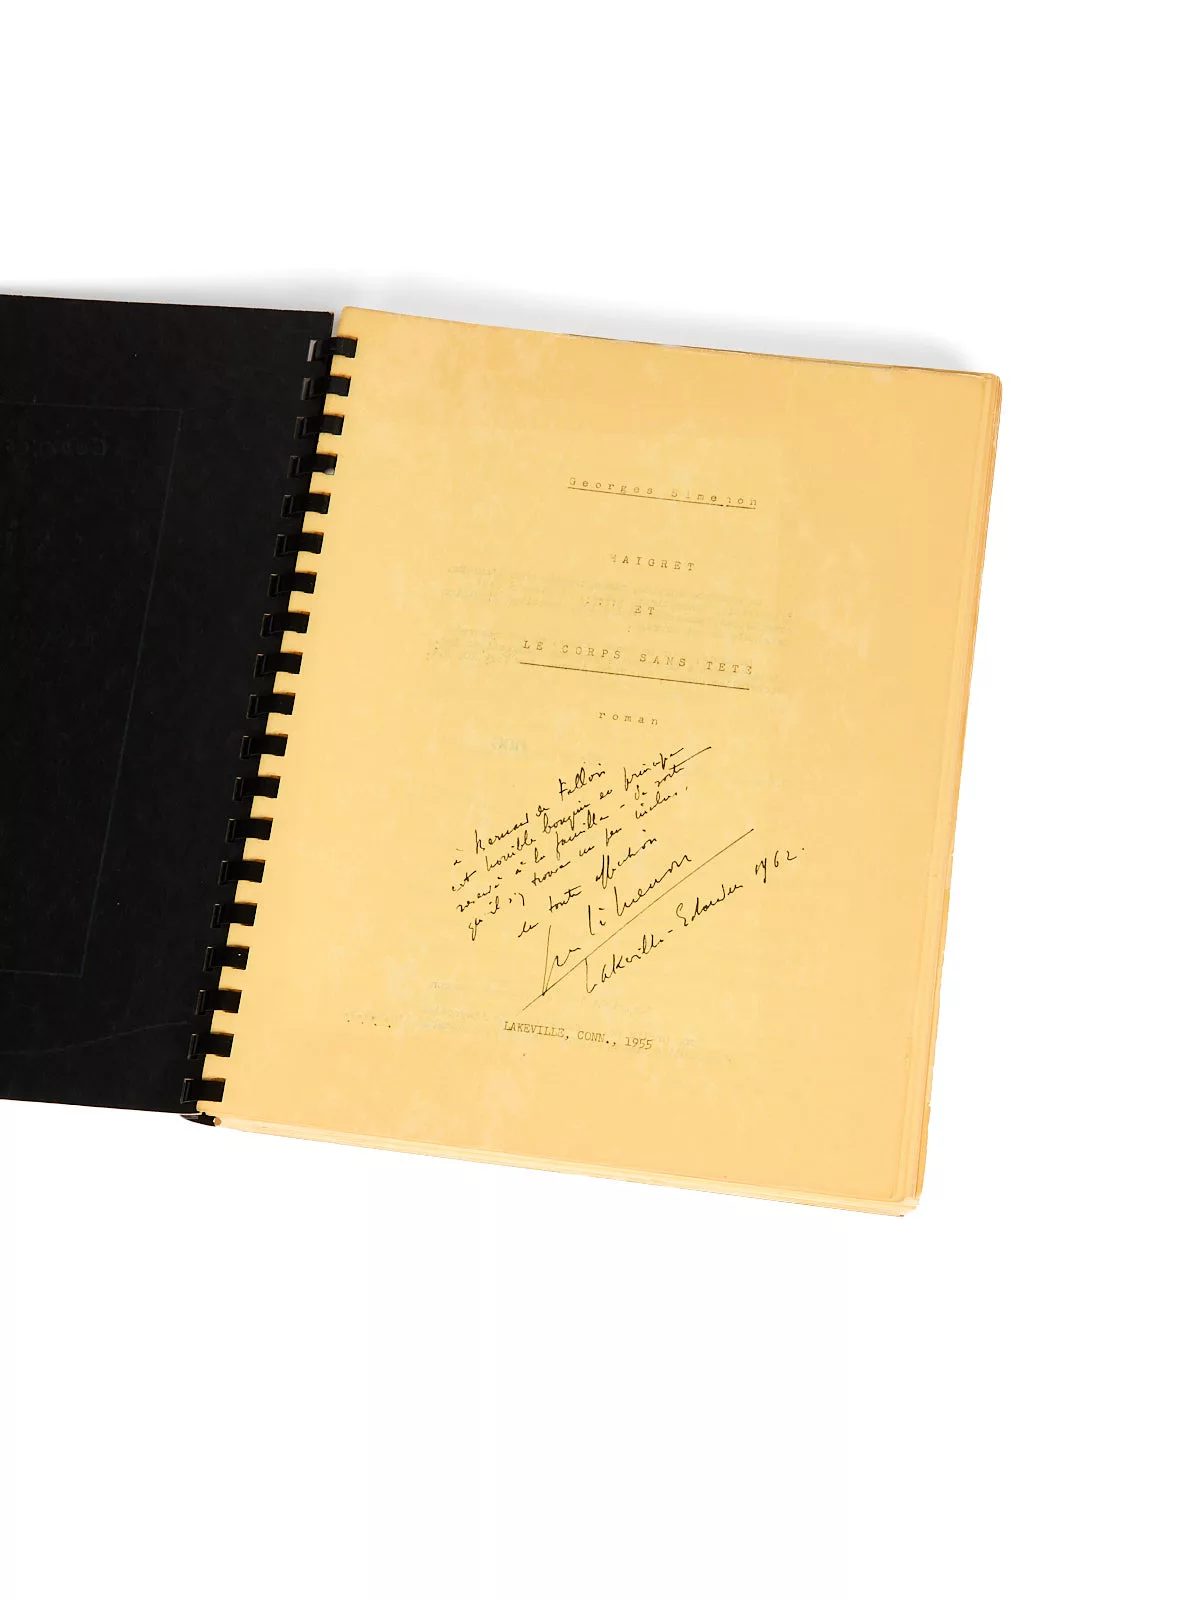 Georges Simenon
MAIGRET
ET
LE CORPS SANS TETE
roman
à Bernard de Fallois
cet horrible bouquin en principe
réservé à la famille - de sorte
qu'il s'y trouve un peu inclus,
en toute affection
Simenon
Lakeville - Echandens 1962.
LAKEVILLE, CONN., 1955